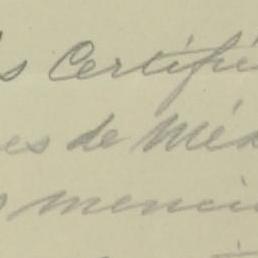 s Certifi
es de Mé
menci